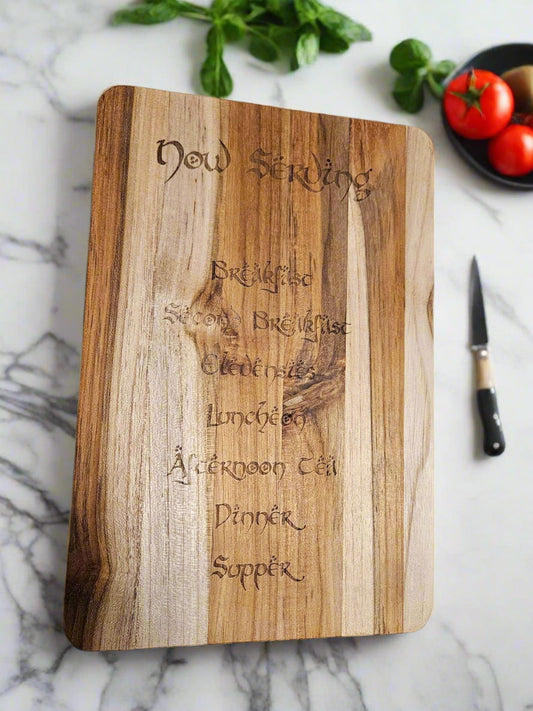 Now Serving
Breakfast
Second Breakfast
Elevensies
Luncheon
Afternoon Tea
Dinner
Supper